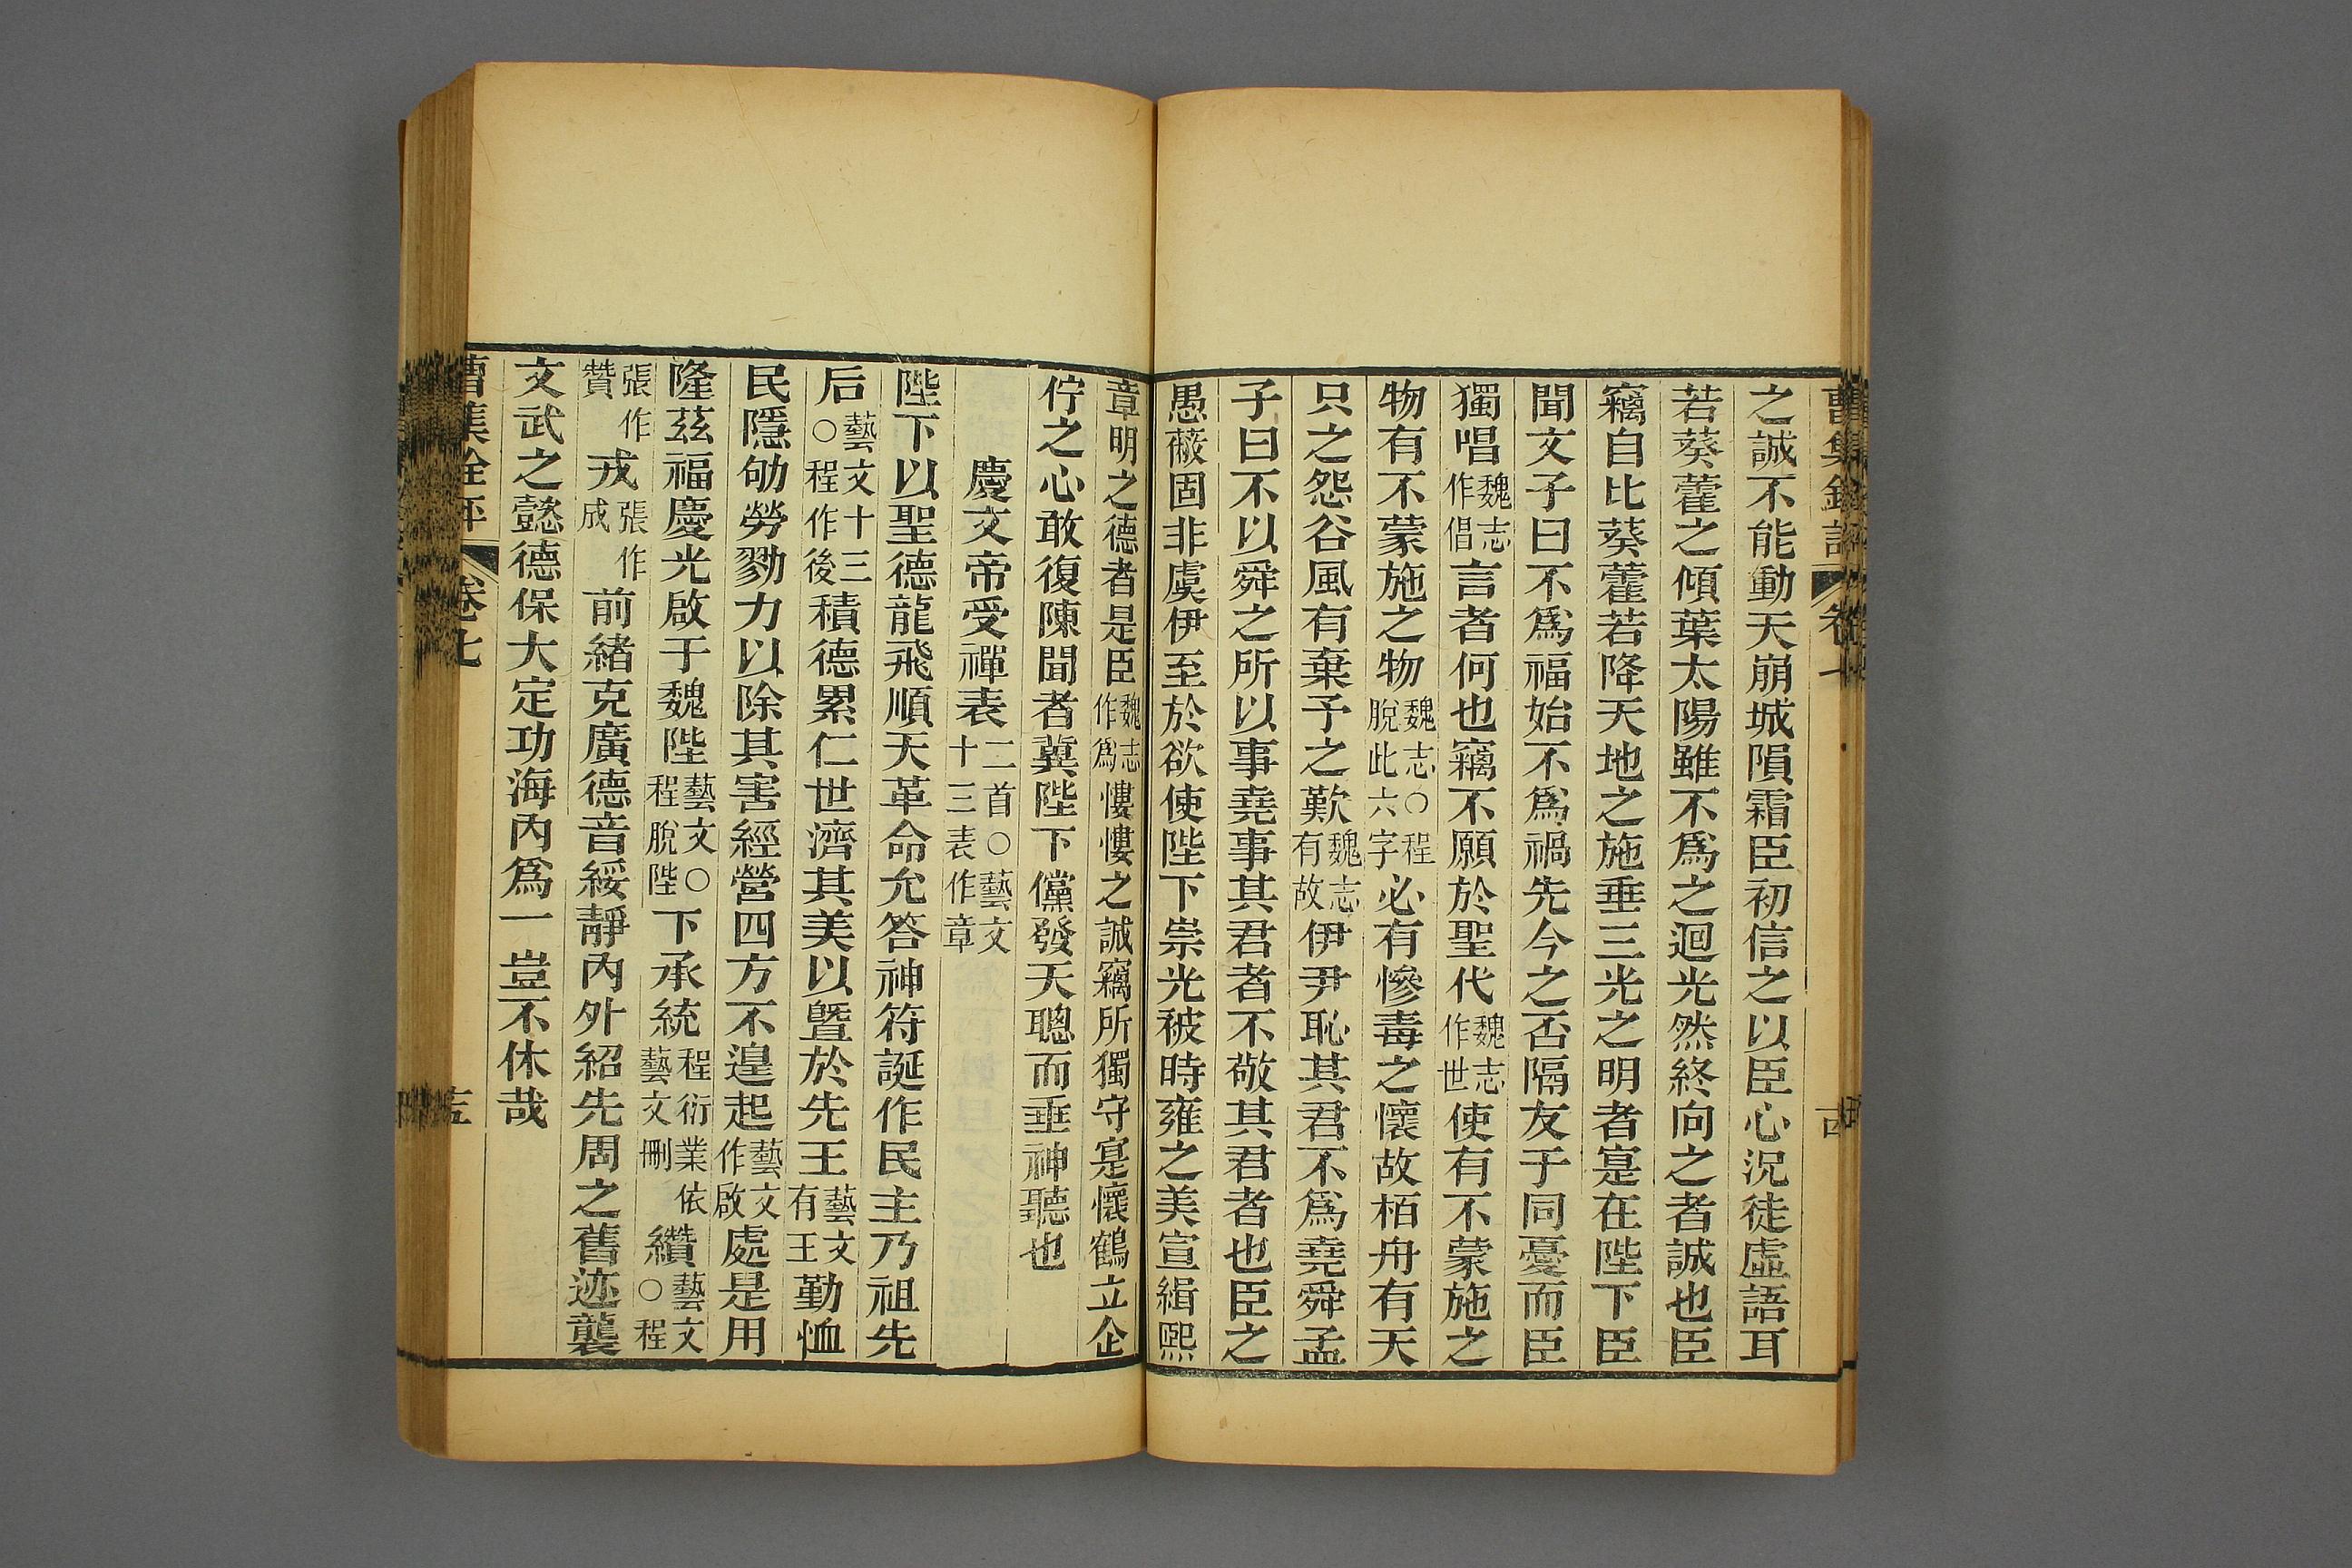 之誠不能動天崩城隕霜臣初信之以臣心況徒虛語耳
若葵藿之傾葉太陽雖不爲之迴光然終向之者誠也臣
竊自比葵藿若降天地之施垂三光之明者寔在陛下臣
聞文子曰不爲福始不爲禍先今之否隔友于同憂而臣
獨唱魏志作倡言者何也竊不願於聖代魏志作世使有不蒙施之
物有不蒙施之物魏志○程脫此六字必有慘毒之懷故栢舟有天
只之怨谷風有棄予之歎魏志有故伊尹恥其君不爲堯舜孟
子曰不以舜之所以事堯事其君者不敬其君者也臣之
愚蔽固非虞伊至於欲使陛下崇光被時雍之美宣緝熙
章明之德者是臣魏志作爲慺慺之誠竊所獨守寔懷鶴立企
佇之心敢復陳聞者冀陛下儻發天聰而垂神聽也
慶文帝受禪表二首○藝文十三表作章
陛下以聖德龍飛順天革命允答神符誕作民主乃祖先
后藝文十三○程作後積德累仁世濟其美以曁於先王藝文有王勤恤
民隱劬勞勠力以除其害經營四方不遑起藝文作啟處是用
隆茲福慶光啟于魏陛藝文○程脫陛下承統程衍業依藝文刪纘藝文○程
張作贊戎張作成前緒克廣德音綏靜內外紹先周之舊迹襲
文武之懿德保大定功海內爲一豈不休哉
曹集銓評
卷七